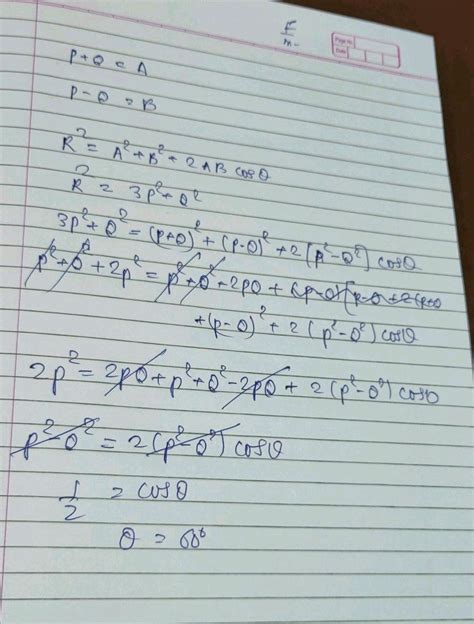 F
m
Page No.
Date
P+Q = A
P-Q = B
R² = A² + B² + 2AB cosθ
R² = 3P² + Q²
3P² + Q² = (P+Q)² + (P-Q)² + 2(P²-Q²) cosθ
P² + Q² + 2P² = P² + Q² + 2PQ +
+(P-Q)² + 2(P²-Q²) cosθ
2P² = 2PQ + P² + Q² - 2PQ + 2(P²-Q²) cosθ
P² - Q² = 2(P²-Q²) cosθ
1/2 = cosθ
θ = 60°